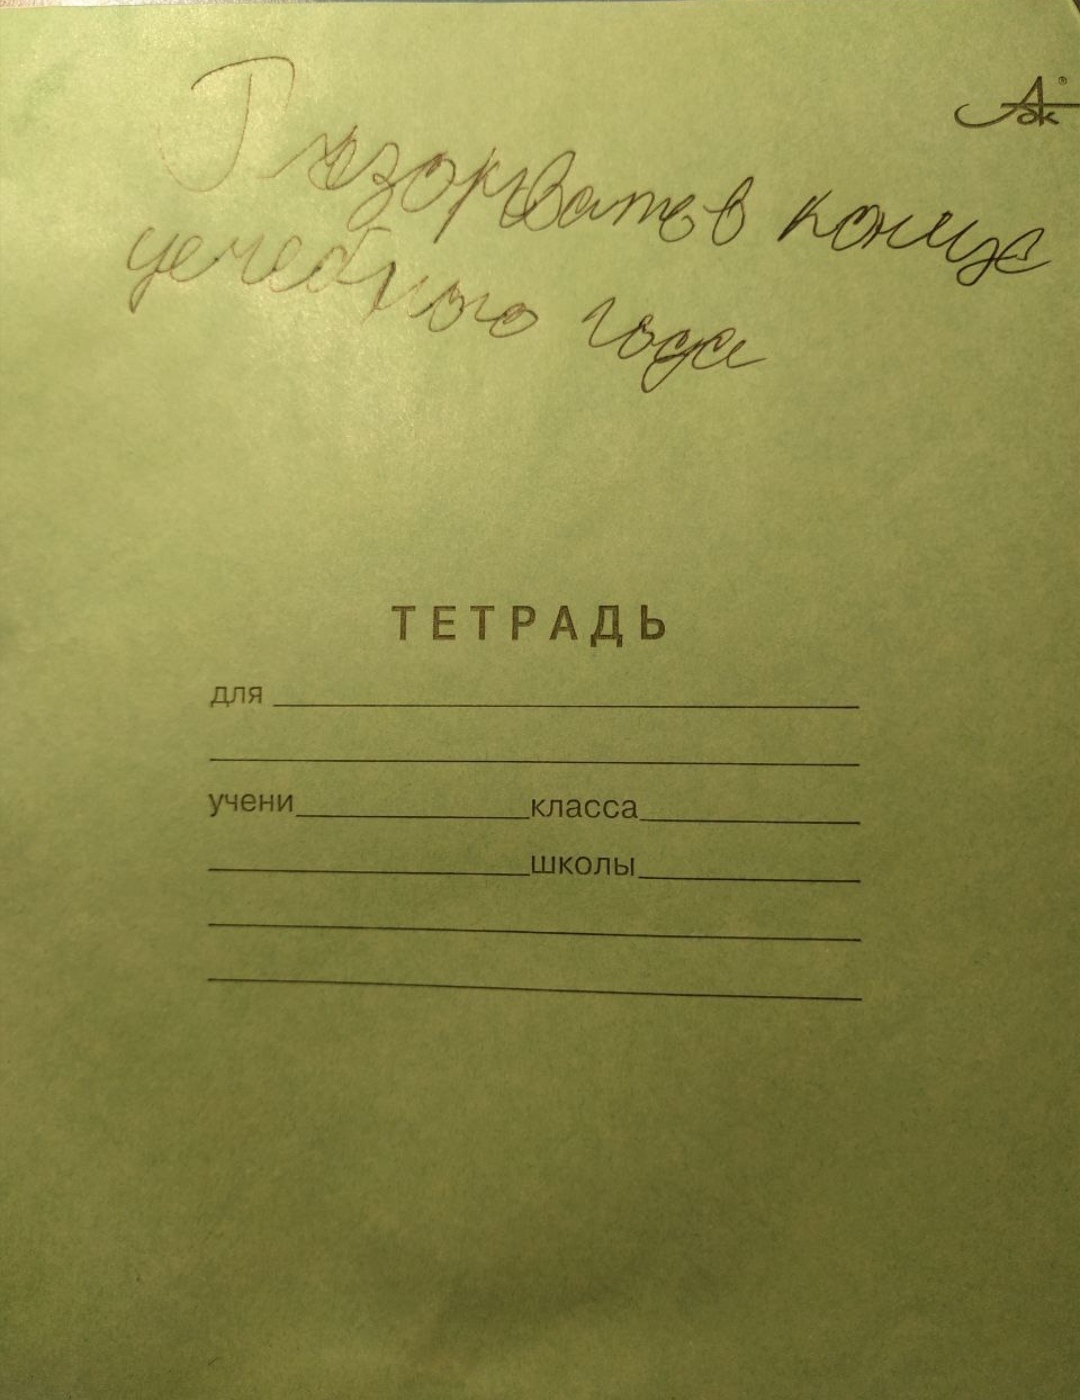 Разорвать в конце
учебного года
ТЕТРАДЬ
для
учени класса
школы